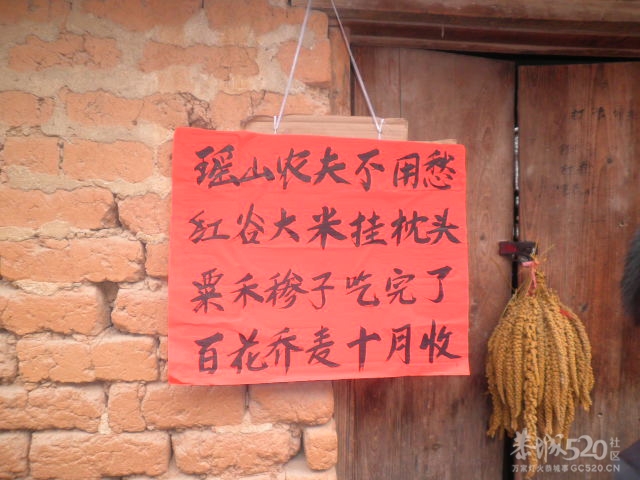 瑶山农夫不用愁
红谷大米挂枕头
粟禾穇子吃完了
百花乔麦十月收
恭城520社区
万家灯火恭城事GC520.CN